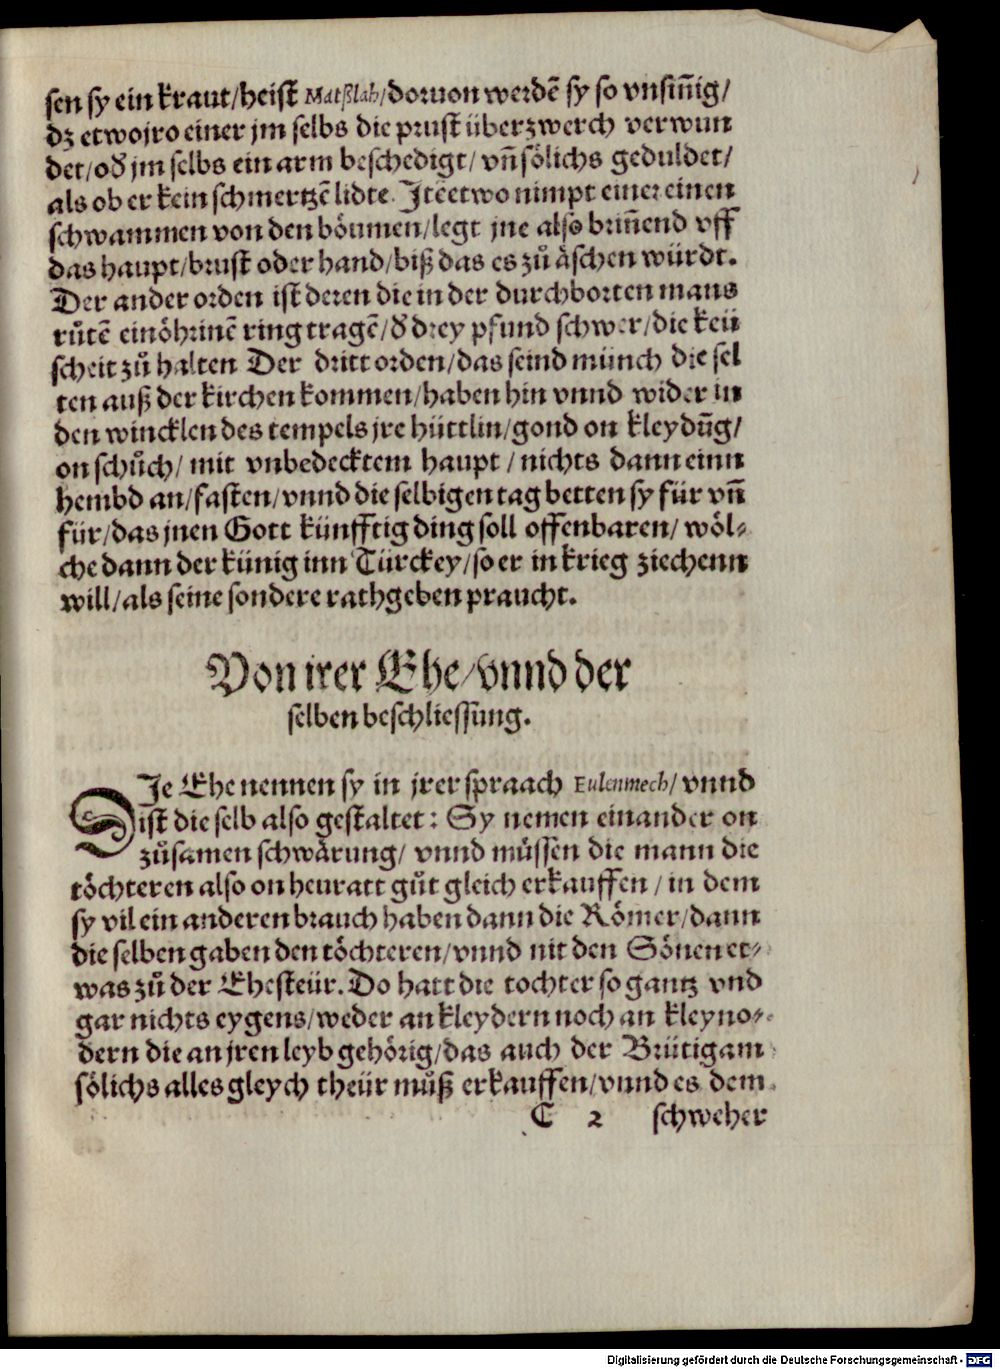 sen sy ein kraut/heist Matßlab/doruon werdẽ sy so vnsiñig/
dz etwo jro einer jm selbs die prust überzwerch verwun
det/oð jm selbs ein arm beschedigt/ vñ sölichs geduldet/
als ob er kein schmertzẽ lidte. Jtẽ etwo nimpt einer einen
schwammen von den böumen/legt jne also briñend vff
das haupt/brust oder hand/biß das es zů äschen würdt.
Der ander orden ist deren die in der durchborten mans
růtẽ ein öhrinẽ ring tragẽ/ð drey pfund schwer/die keü
scheit zů halten Der dritt orden/das seind münch die sel
ten auß der kirchen kommen/haben hin vnnd wider in
den wincklen des tempels jre hüttlin/gond on kleydũg/
on schůch/ mit vnbedecktem haupt / nichts dann einn
hembd an/fasten/vnnd die selbigen tag betten sy für vñ
für/das jnen Gott künfftig ding soll offenbaren/ wöl-
che dann der künig inn Türckey/so er in krieg ziechenn
will/als seine sondere rathgeben praucht.
Von irer Ehe/vnnd der
selben beschliessung.
DJe Ehe nennen sy in jrer spraach Eulenmech/ vnnd
ist die selb also gestaltet: Sy nemen einander on
zůsamen schwärung/ vnnd müssen die mann die
töchteren also on heuratt gůt gleich erkauffen / in dem
sy vil ein anderen brauch haben dann die Römer/dann
die selben gaben den töchteren/vnnd nit den Sönen et-
was zů der Ehesteür. Do hatt die tochter so gantz vnd
gar nichts eygens/weder an kleydern noch an kleyno-
dern die an jren leyb gehörig/das auch der Brütigam
sölichs alles gleych theür můß erkauffen/vnnd es dem
C 2 schweher
Digitalisierung gefördert durch die Deutsche Forschungsgemeinschaft - DFG